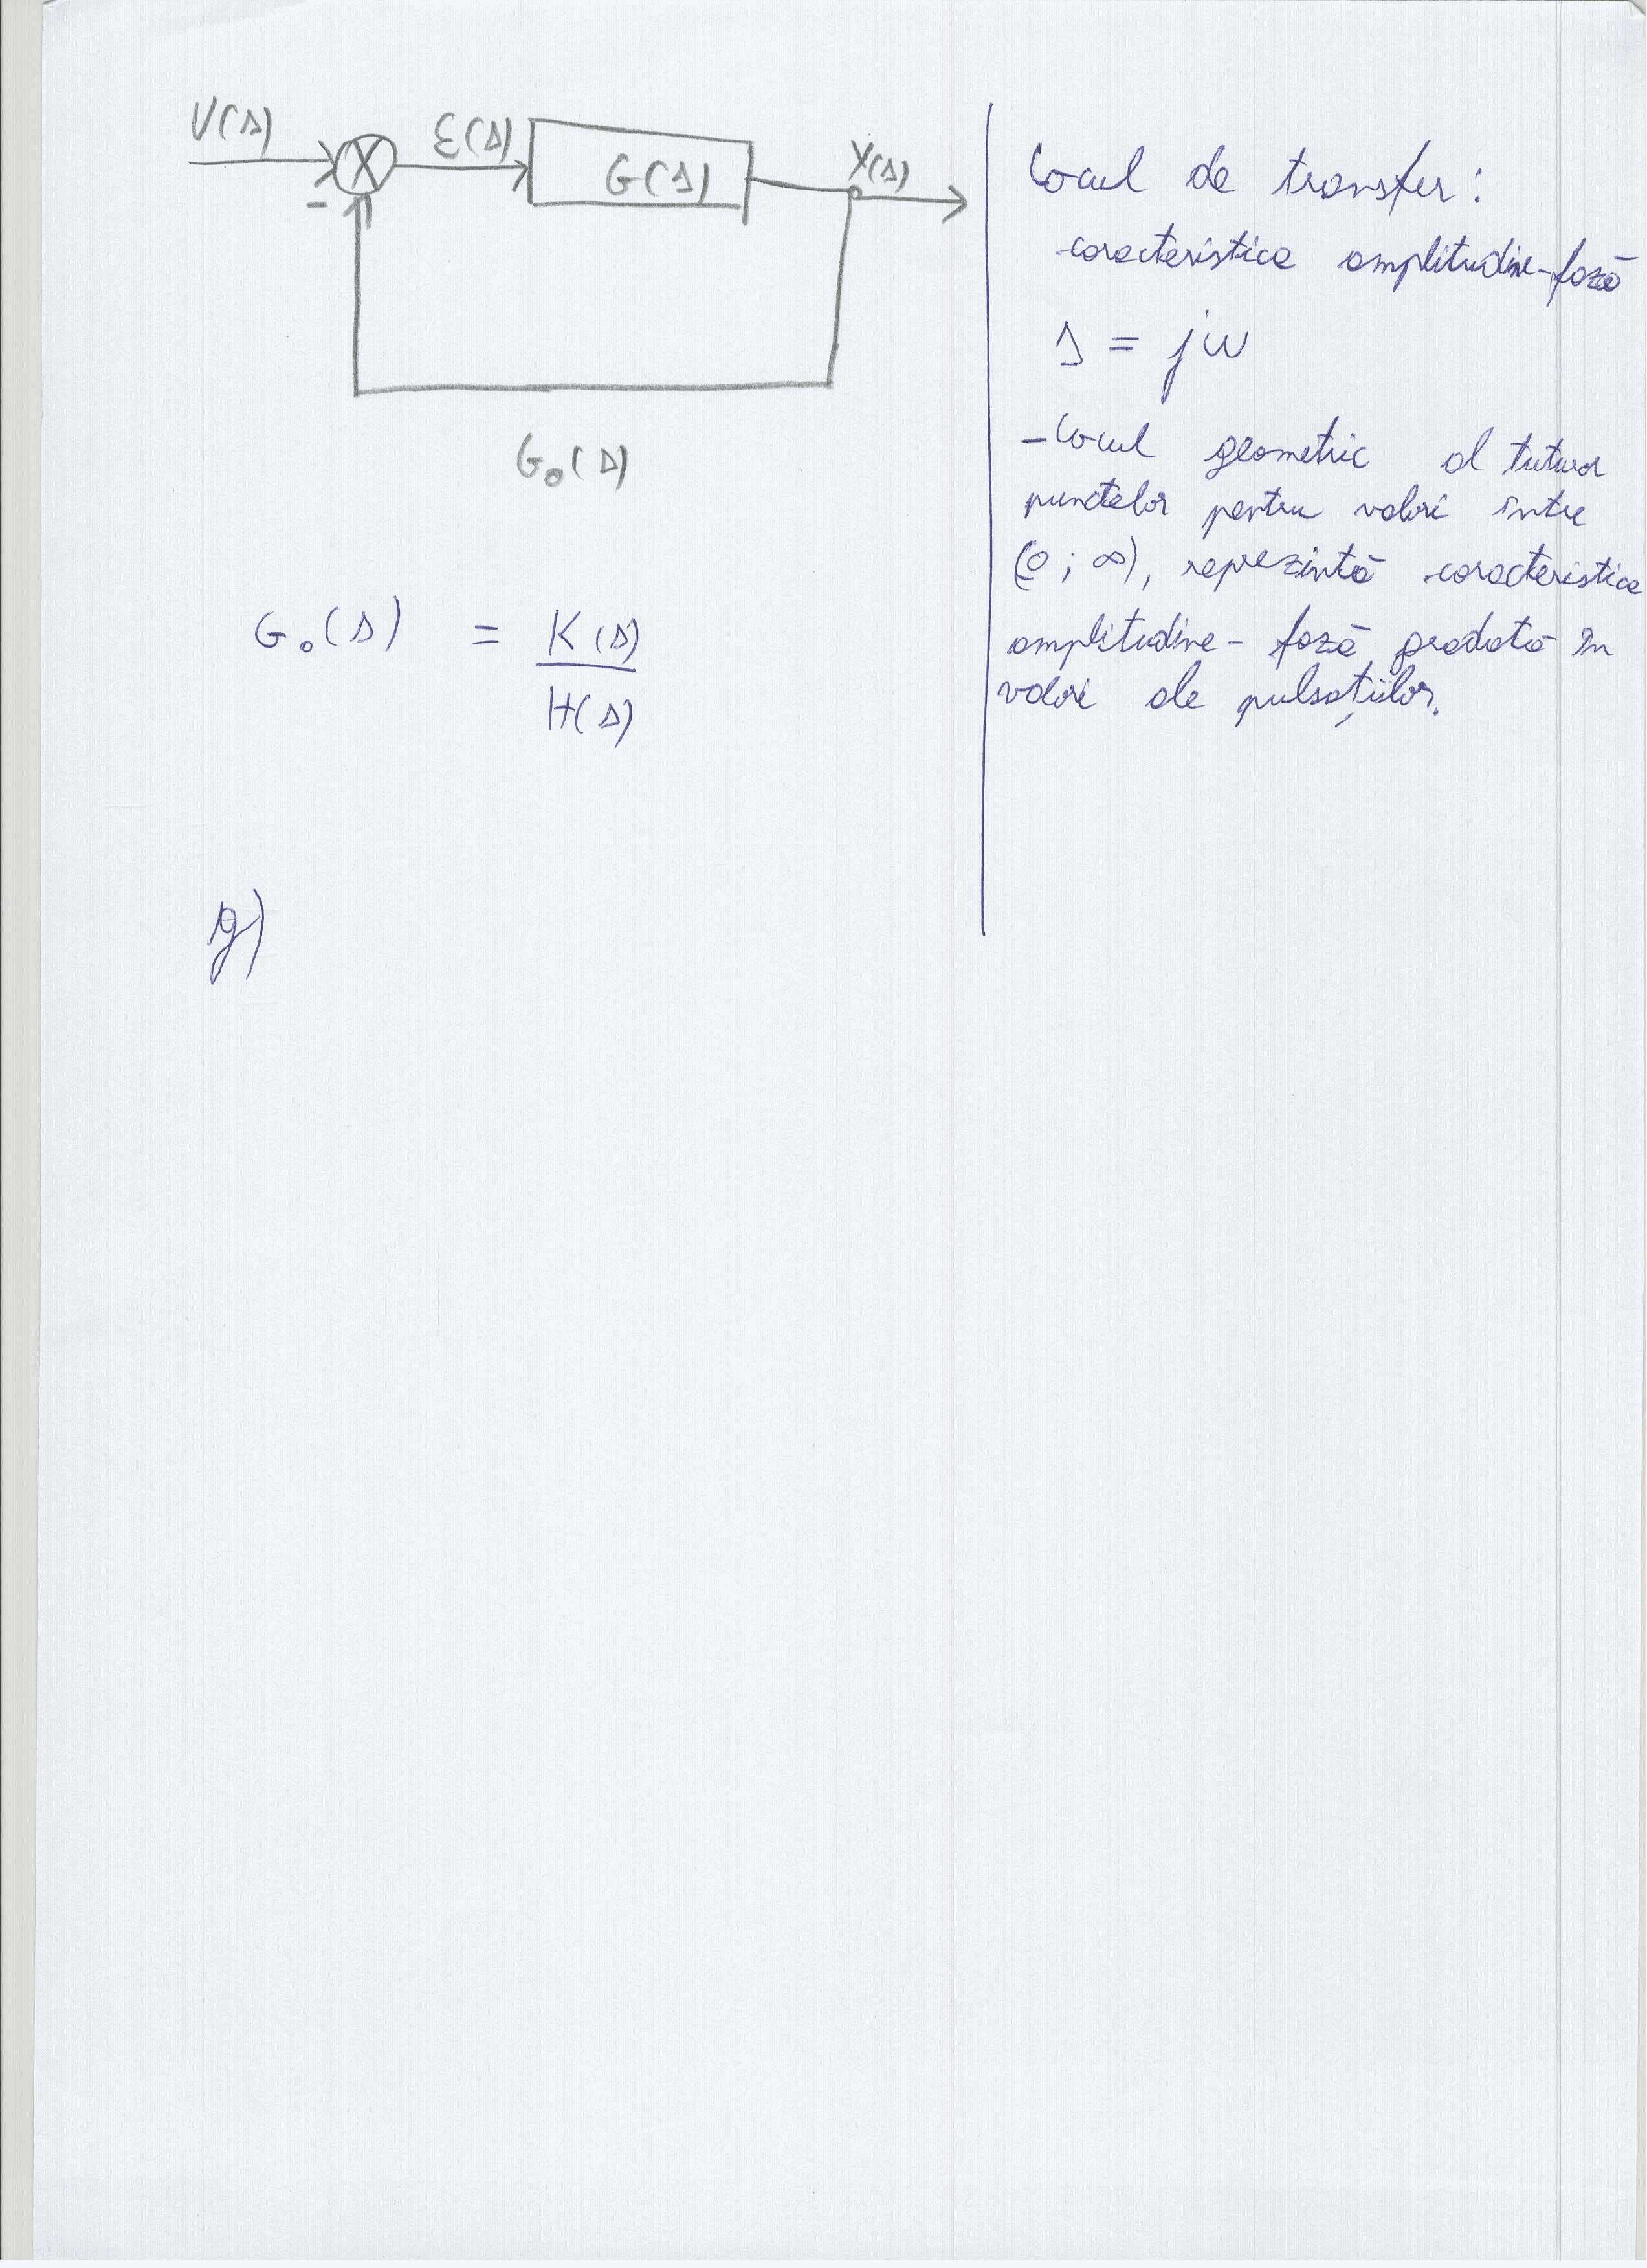 V(s)
ε(s)
G(s)
Y(s)
-
G₀(s)
G₀(s) = K(s)
H(s)
g)
Locul de transfer:
caracteristica amplitudine-fază
s = jω
- Locul geometric al tuturor
punctelor pentru valori între
(0; ∞), reprezintă caracteristica
amplitudine - fază gradată în
valori ale pulsațiilor.